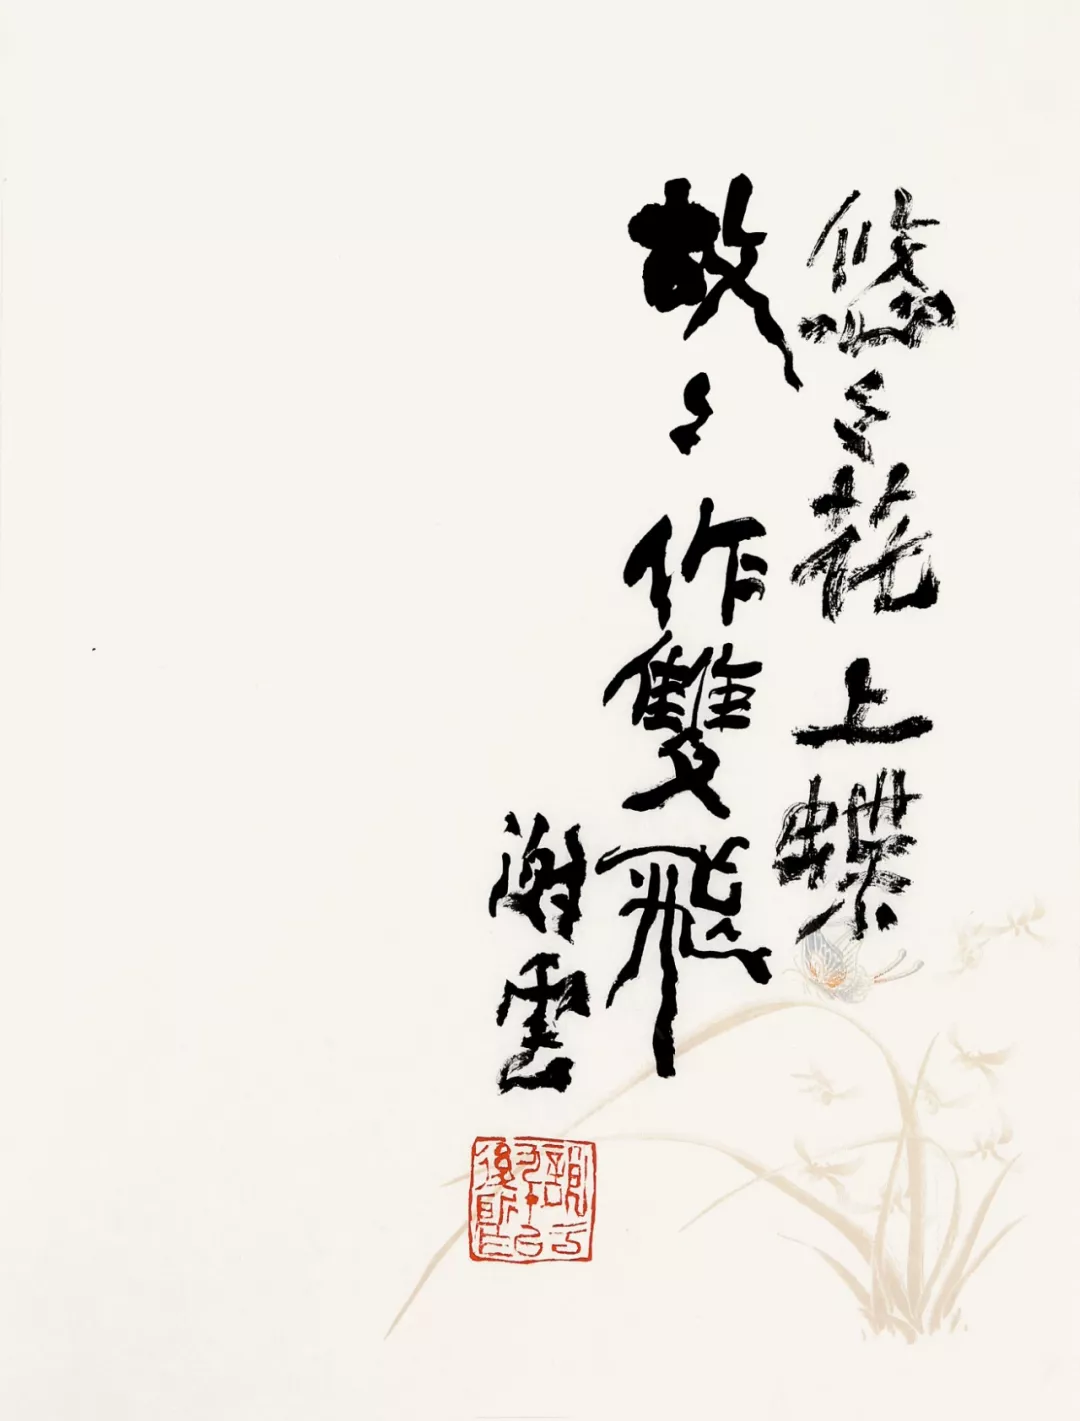 悠〻花上蝶
故〻作雙飛
謝雲